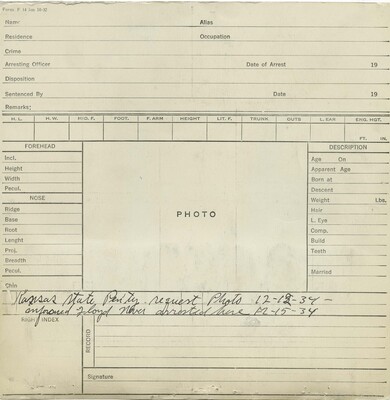 Name Alias
Residence Occupation
Crime
Arresting Officer Date of Arrest 19
Disposition
Sentenced By Date 19
Remarks:
H. L. H. W. MID. F. FOOT. F. ARM HEIGHT LIT. F. TRUNK OUTS L. EAR ENG. HGT.
FT. IN.
FOREHEAD
Incl.
Height
Width
Pecul.
NOSE
Ridge
Base
Root
Lenght
Proj.
Breadth
Pecul.
Chin
PHOTO
DESCRIPTION
Age On
Apparent Age
Born at
Descent
Weight Lbs.
Hair
L. Eye
Comp.
Build
Teeth
Married
Kansas State request Photo 12-12-34 –
informed Floyd Never arrested here 12-15-34
RIGHT INDEX
RECORD
Signature